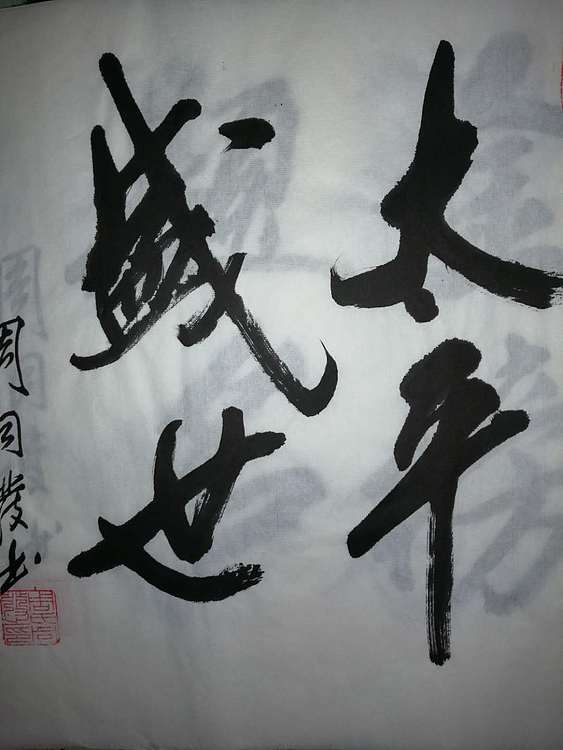 太平
盛世
周同發书